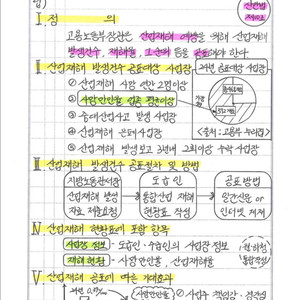 Ⅰ. 정 의
고용노동부장관은 산업재해 예방을 위해 산업재해
발생건수, 재해율, 그 순위 등을 공표해야 한다.
Ⅱ. 산업재해 발생건수 공표대상 사업장
① 산업재해 사망 연간 2명이상
② 사망만인율 같은 평균이상
③ 중대산업사고 발생 사업장
④ 산업재해 은폐사업장
⑤ 산업재해 발생보고 3년내 2회이상 누락 사업장
<출처: 고용부 누리집>
Ⅲ. 산업재해 발생건수 공표절차 및 방법
지방노동관서장
산업재해 발생
자료 제출요청
도급인
통합산업 재해
현황표 작성
공표 방법
일간신문 or
인터넷 게재
Ⅳ. 산업재해 현황표에 포함 항목
사업장 정보 - 도급인·수급인의 사업장 정보
재해 현황 - 사망만인율, 산업재해율
Ⅴ. 산업재해 공표에 따른 기대효과
사망만인율